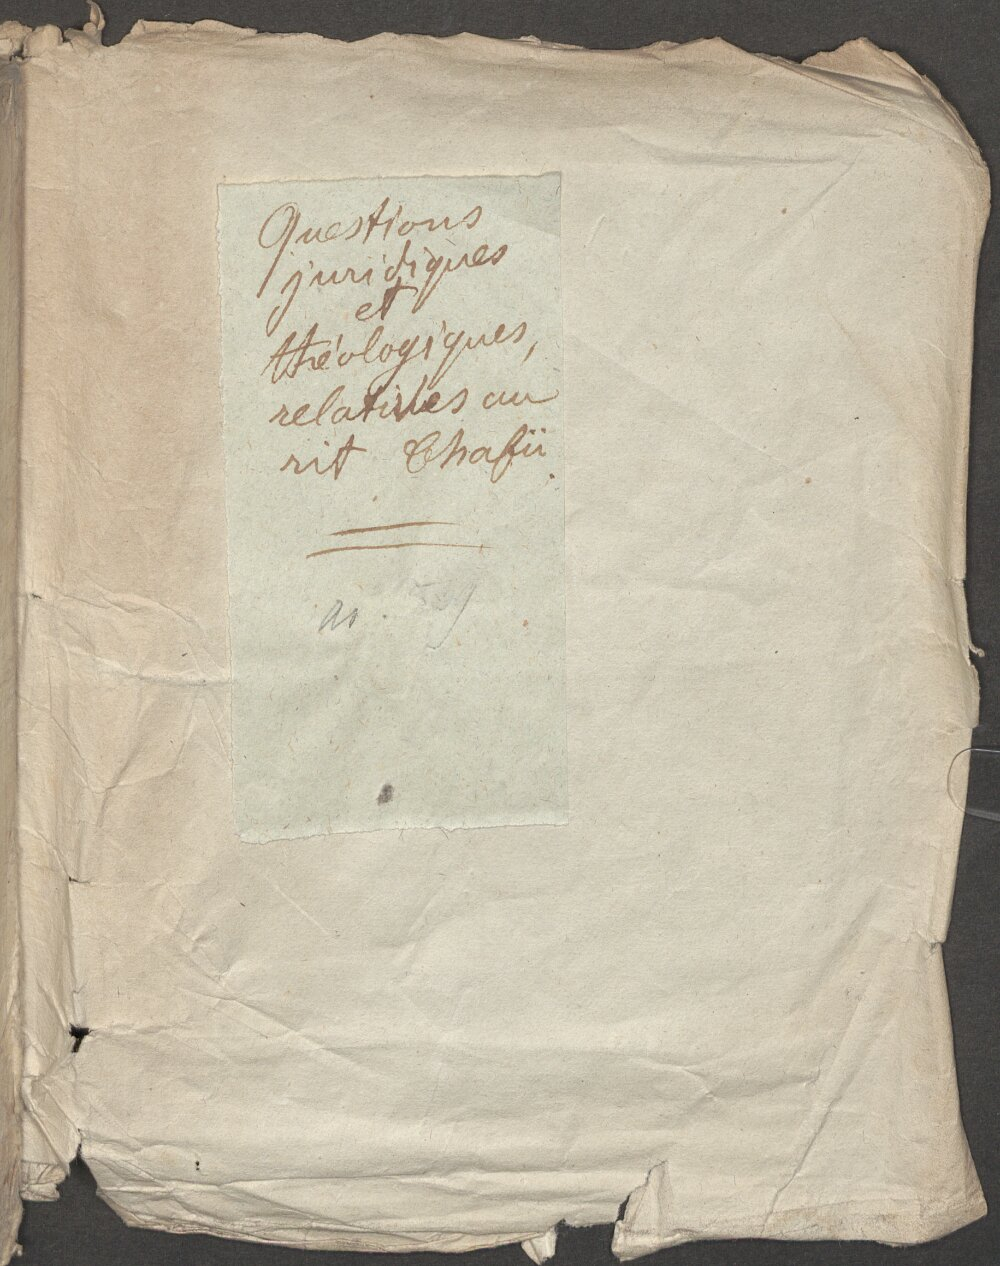 Questions
juridiques
et
théologiques,
relatives au
rit Chafïi.